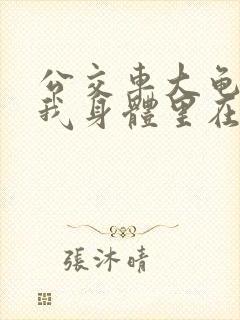 公交車大龟
我身體里在
張沐晴